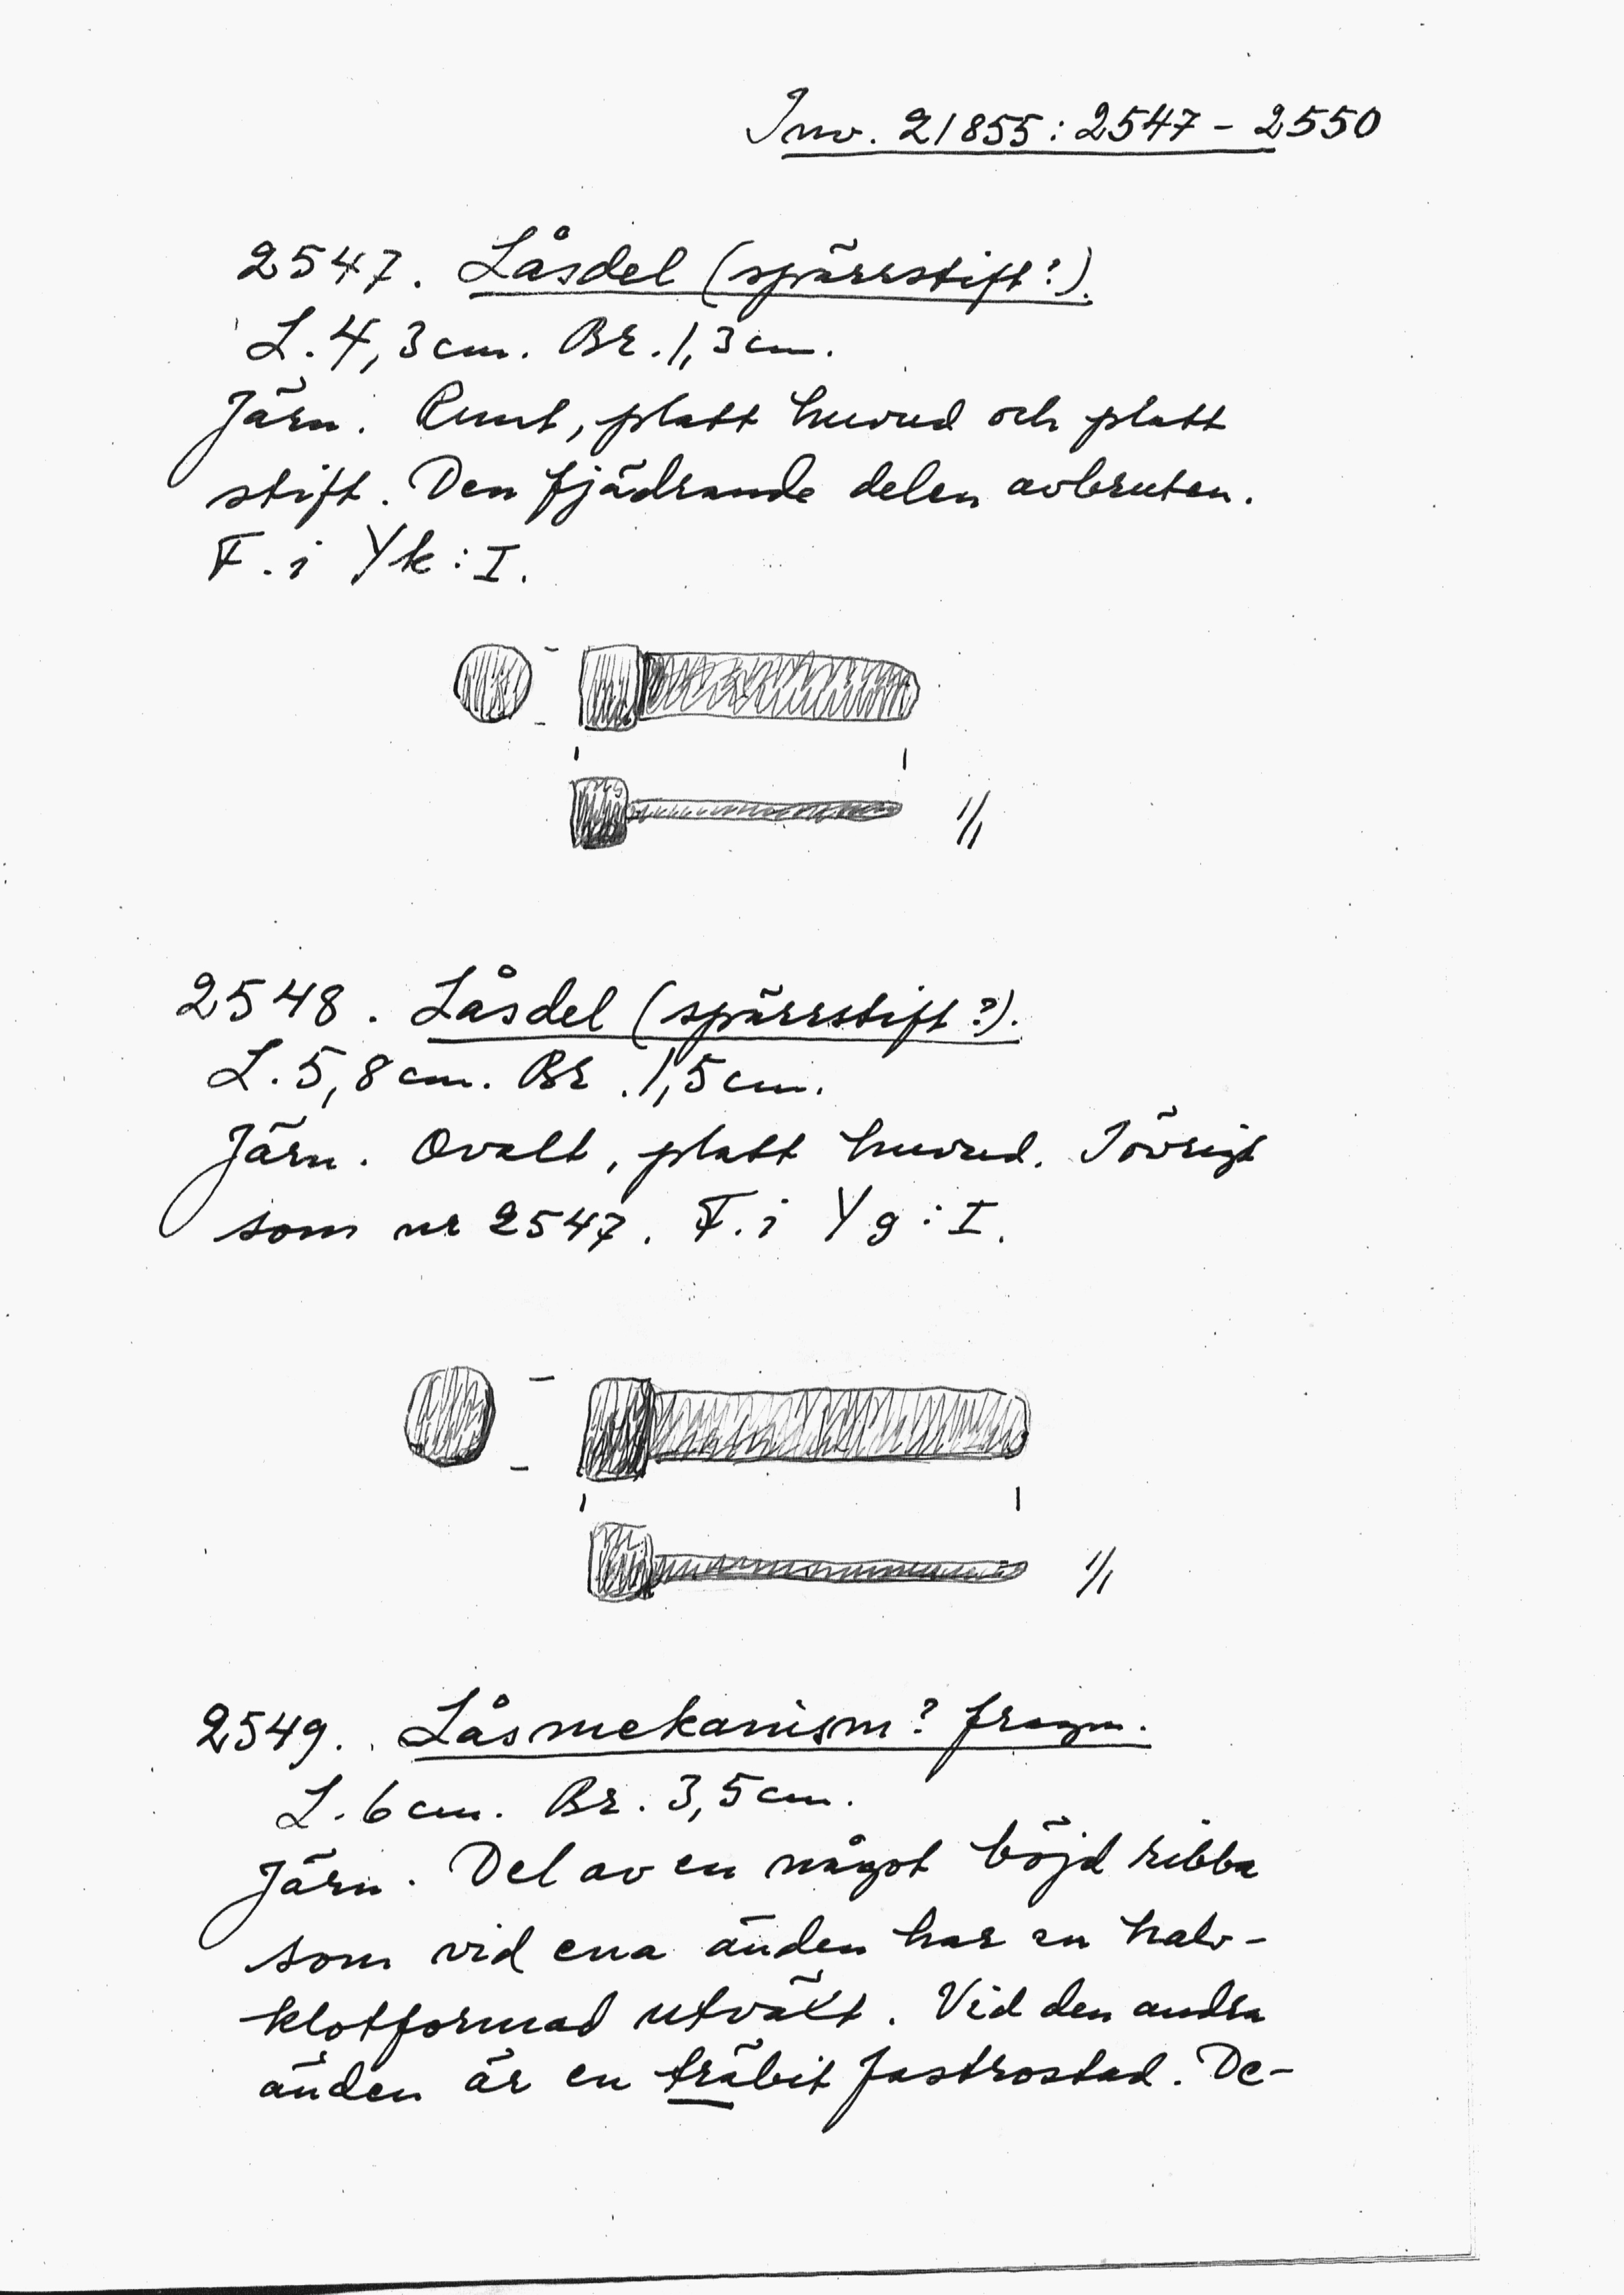 Inv. 21855:2547-2550
2547. Låsdel (spärrstift?).
L. 4,3cm. Br. 1,3cm.
Järn. Runt, platt huvud och platt
stift. Den fjädrande delen avbruten.
F. i Yk:I.
1/1
2548. Låsdel (spärrstift?).
L. 5,8cm. Br. 1,5cm.
Järn. Ovalt, platt huvud. Iövrigt
som nr 2547. F. i Yg:I.
1/1
2549. Låsmekanism? fragm.
L. 6cm. Br. 3,5cm.
Järn. Del av en något böjd ribba
som vid ena änden har en halv-
klotformad utväxt. Vid den andra
änden är en träbit fastrostad. De-